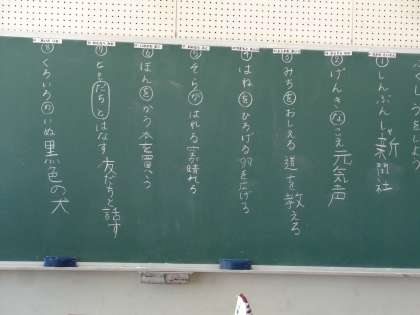 ①しんぶんしゃ 新聞社
②げんきなこえ 元気声
③みちをおしえる 道を教える
④はねをひろげる 羽を広げる
⑤そらがはれる 空晴れる
⑥ほんをかう 本を買う
⑦ともだちとはなす 友だちと話す
⑧くろいろのいぬ 黒色の犬